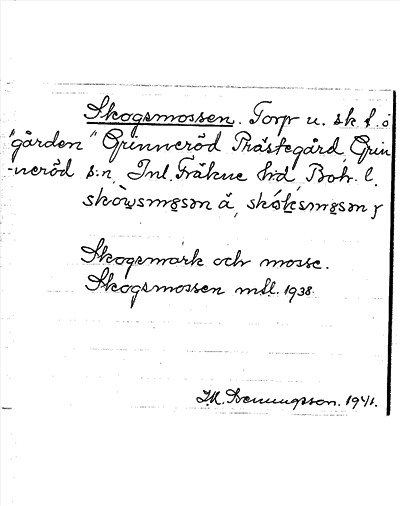 Skogsmossen. Torp u. sk. f. ö
"gården" Grinneröd Prästegård, Grin-
-neröd s:n, Inl. Fräkne hd, Boh. l.
Skogsmark och mosse.
Skogsmossen mtl. 1938.
1941.